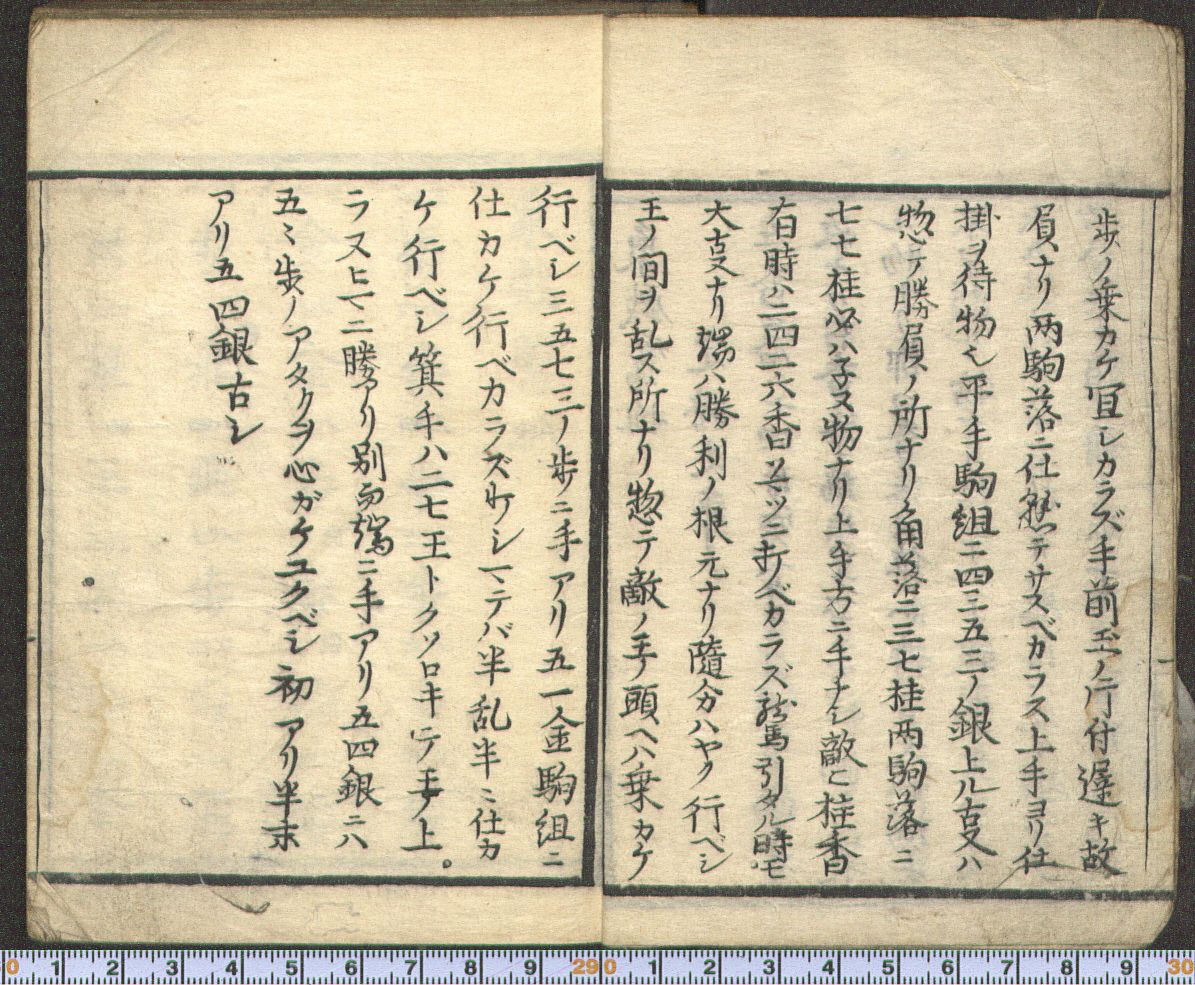 歩ノ乗カケ宜シカラズ手前玉ノ片付遅キ故
負ナリ両駒落ニ仕懸テサスベカラス上手ヨリ仕
掛ヲ待物也平手駒組二四三五三ノ銀上ル古又ハ
惣テ勝負ノ所ナリ角落ニ三七桂両駒落ニ
七七桂必ハ子ヌ物ナリ上手方ニ手ナシ敵ニ桂香
有時ハ二四二六香 ニ打ベカラズ 引タル時モ
大古又ナリ端ハ勝利ノ根元ナリ随分ハヤク行ベシ
王ノ間ヲ乱ス所ナリ惣テ敵ノ王ノ頭ヘハ乗カケ
行ベシ三五七三ノ歩ニ手アリ五一金駒組ニ
仕カケ行ベカラズ バ半乱半ニ仕カ
ケ行ベシ箕手ハ二七王トクツロキテ王ノ上
ラヌ ニ勝アリ別而端ニ手アリ五四銀ニハ
五ミ歩ノアタタヲ心ガケユクベシ初アリ半末
アリ五四銀古シ
0 1 2 3 4 5 6 7 8 9 29 0 1 2 3 4 5 6 7 8 9 30